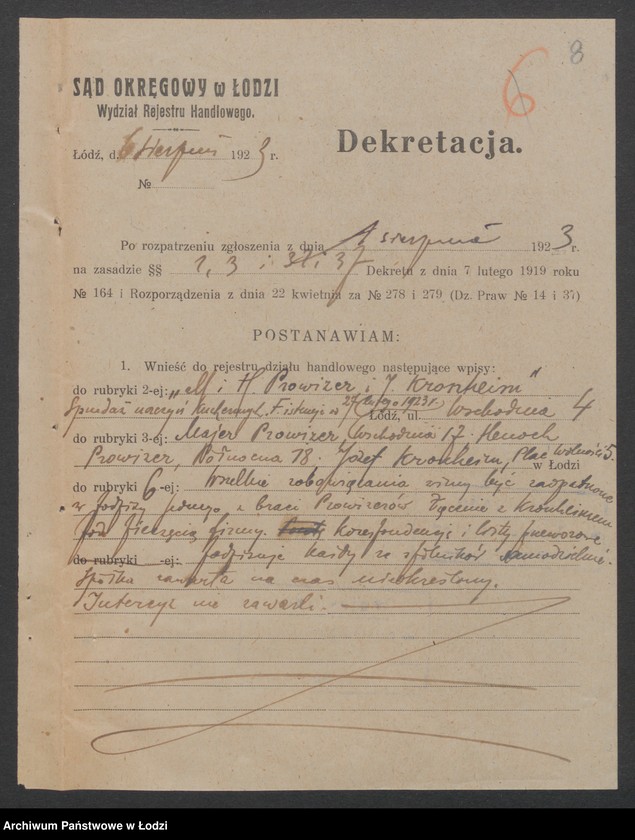 6 8
SĄD OKRĘGOWY w ŁODZI
Wydział Rejestru Handlowego.
Łódź, d. 6 sierpnia 1923 r.
Dekretacja.
№
Po rozpatrzeniu zgłoszenia z dnia 1 sierpnia 1923 r.
na zasadzie §§ 1, 3 i 37 Dekretu z dnia 7 lutego 1919 roku
№ 164 i Rozporządzenia z dnia 22 kwietnia za № 278 i 279 (Dz. Praw № 14 i 37)
POSTANAWIAM:
1. Wnieść do rejestru działu handlowego następujące wpisy:
do rubryki 2-ej: „M i H Prowizer i J. Kronheim"
Sprzedaż naczyń kuchennych. Istnieje w 1923 r. Łódź, ul. Wschodnia 4
do rubryki 3-ej: Majer Prowizer, Wschodnia 17. Henoch
Prowizer, Północna 18. Józef Kronheim, Plac Wolności 5. w Łodzi
do rubryki 6-ej: Wszelkie zobowiązania winny być zaopatrzone
w podpisy jednego z braci Prowizerów łącznie z Kronheimem
pod pieczęcią firmy. Korespondencję i listy przewozowe
do rubryki -ej: podpisuje każdy ze spólników samodzielnie.
Spółka zawarta na czas nieokreślony.
Intercyz nie zawarli.
Archiwum Państwowe w Łodzi